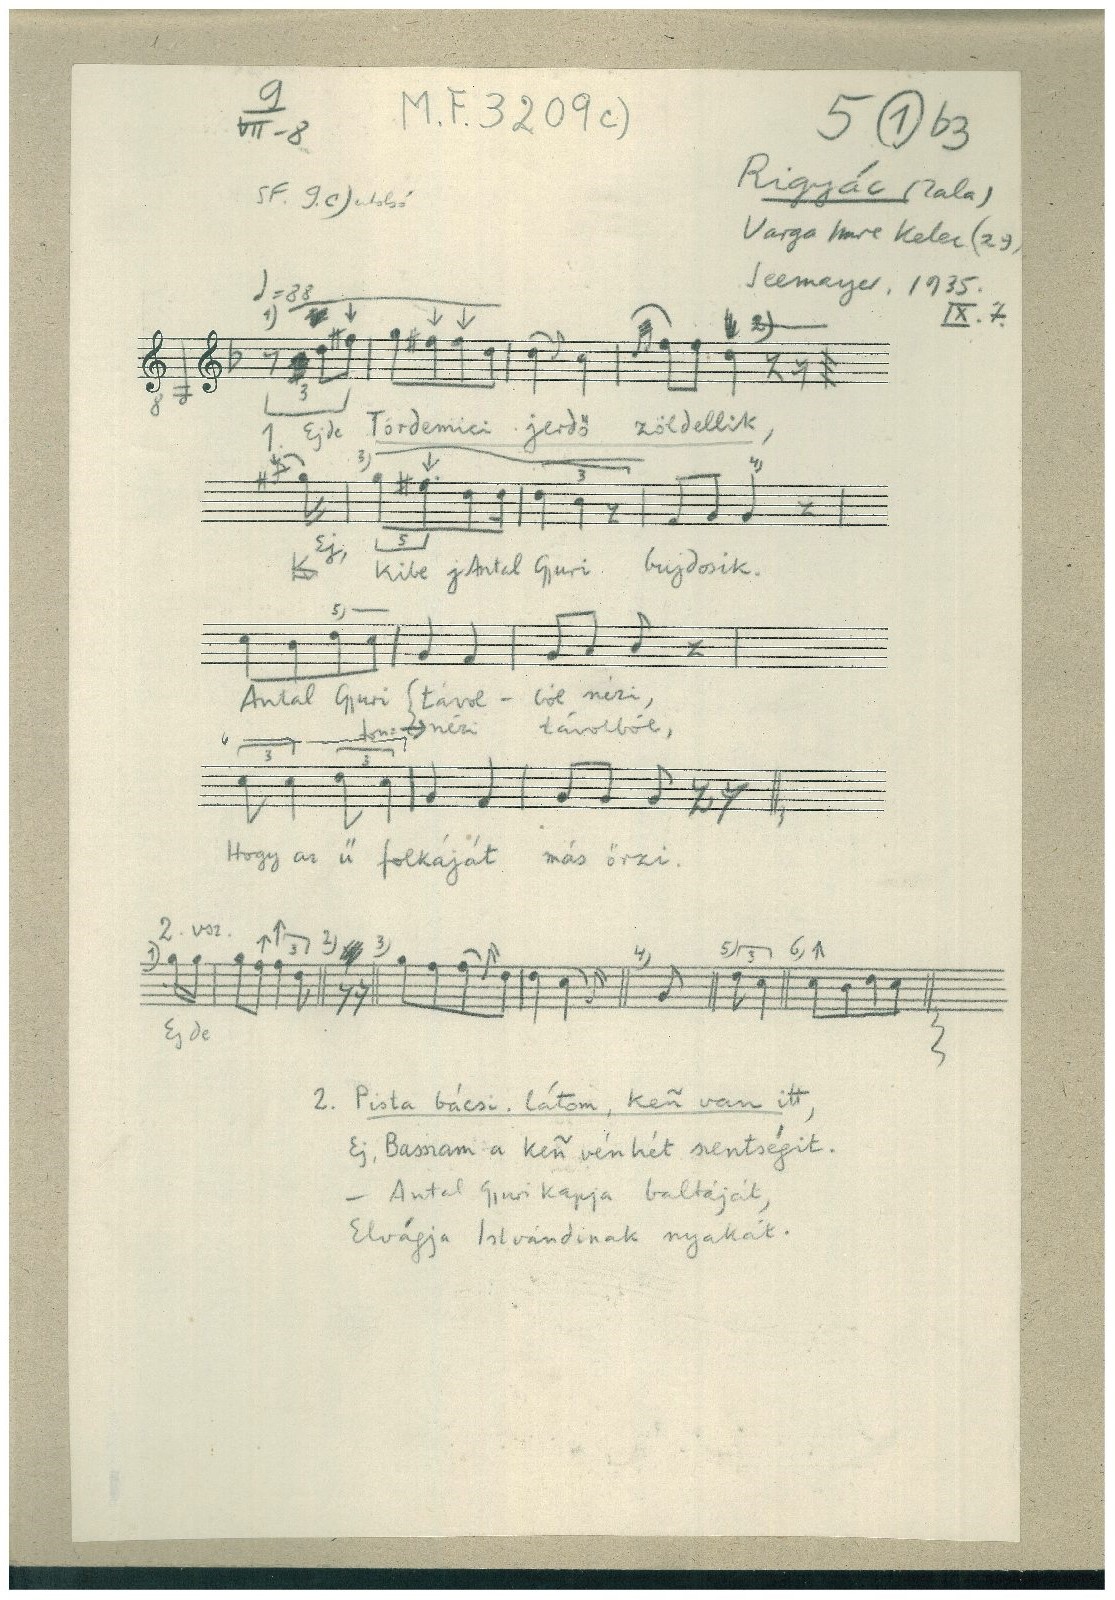 9
VII-8
M.F. 3209c)
5 ① b3
SF. 9.c) utolsó
Rigyác (Zala)
Varga Imre Kelec (29)
Seemayer, 1935.
IX. 7.
♩=88
1) 2)
8
3
1. Ejde Tördemici jerdő zöldellik,
3) 3 4)
5
Ej, Kibe jAntal Gyuri bujdosik.
5)
Antal Gyuri {távol - ból nézi,
fon: nézi távolból,
6
3 3
Hogy az ű folkáját más őrzi.
2. vsz.
1) 3 2) 3) 4) 5) 3 6)
Ejde
2. Pista bácsi, látom, keñ van itt,
Ej, Basszam a keñ vén hét szentségit.
– Antal Gyuri kapja baltáját,
Elvágja Istvándinak nyakát.